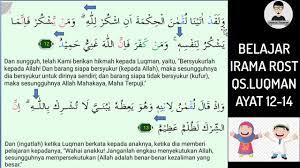 وَلَقَدْ اٰتَيْنَا لُقْمٰنَ الْحِكْمَةَ اَنِ اشْكُرْ لِلّٰهِ ۗ وَمَنْ يَّشْكُرْ فَاِنَّمَا
يَشْكُرُ لِنَفْسِهٖ ۚ وَمَنْ كَفَرَ فَاِنَّ اللّٰهَ غَنِيٌّ حَمِيْدٌ 12
Dan sungguh, telah Kami berikan hikmah kepada Luqman, yaitu, "Bersyukurlah
kepada Allah! Dan barang siapa bersyukur (kepada Allah), maka sesungguhnya
dia bersyukur untuk dirinya sendiri; dan barang siapa tidak bersyukur (kufur),
maka sesungguhnya Allah Mahakaya, Maha Terpuji."
وَاِذْ قَالَ لُقْمٰنُ لِابْنِهٖ وَهُوَ يَعِظُهٗ يٰبُنَيَّ لَا تُشْرِكْ بِاللّٰهِ ۗ اِنَّ
الشِّرْكَ لَظُلْمٌ عَظِيْمٌ 13
Dan (ingatlah) ketika Luqman berkata kepada anaknya, ketika dia memberi
pelajaran kepadanya, "Wahai anakku! Janganlah engkau mempersekutukan Allah,
sesungguhnya mempersekutukan (Allah) adalah benar-benar kezaliman yang
besar."
BELAJAR
IRAMA ROST
QS.LUQMAN
AYAT 12-14